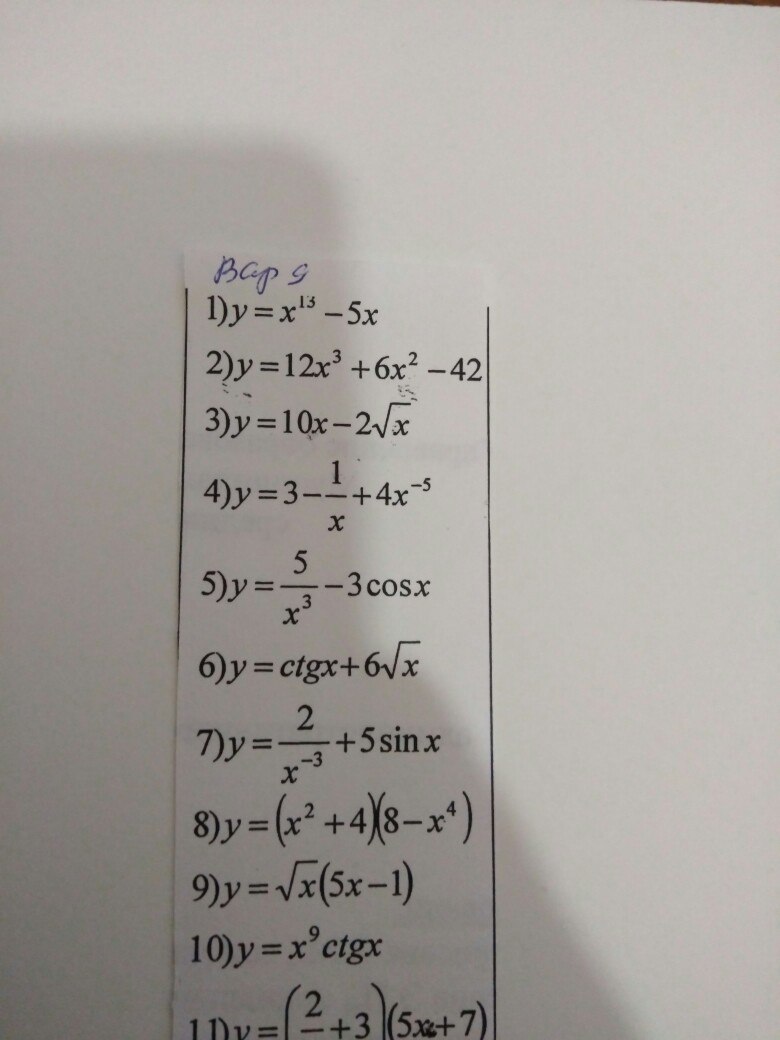 Вар 9
1) y = x¹³ − 5x
2) y = 12x³ + 6x² − 42
3) y = 10x − 2√x
4) y = 3 − 1/x + 4x⁻⁵
5) y = 5/x³ − 3cosx
6) y = ctgx + 6√x
7) y = 2/x⁻³ + 5sinx
8) y = (x² + 4)(8 − x⁴)
9) y = √x(5x − 1)
10) y = x⁹ctgx
11) y = (2/ + 3)(5x + 7)